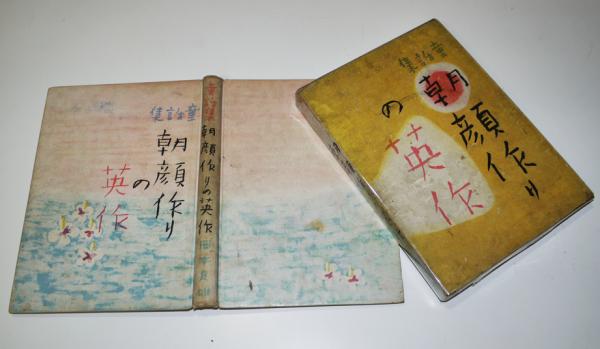 童話集
朝顔作り
の
英作
童話集 朝顔作りの英作
童話集
朝顔作り
の
英作